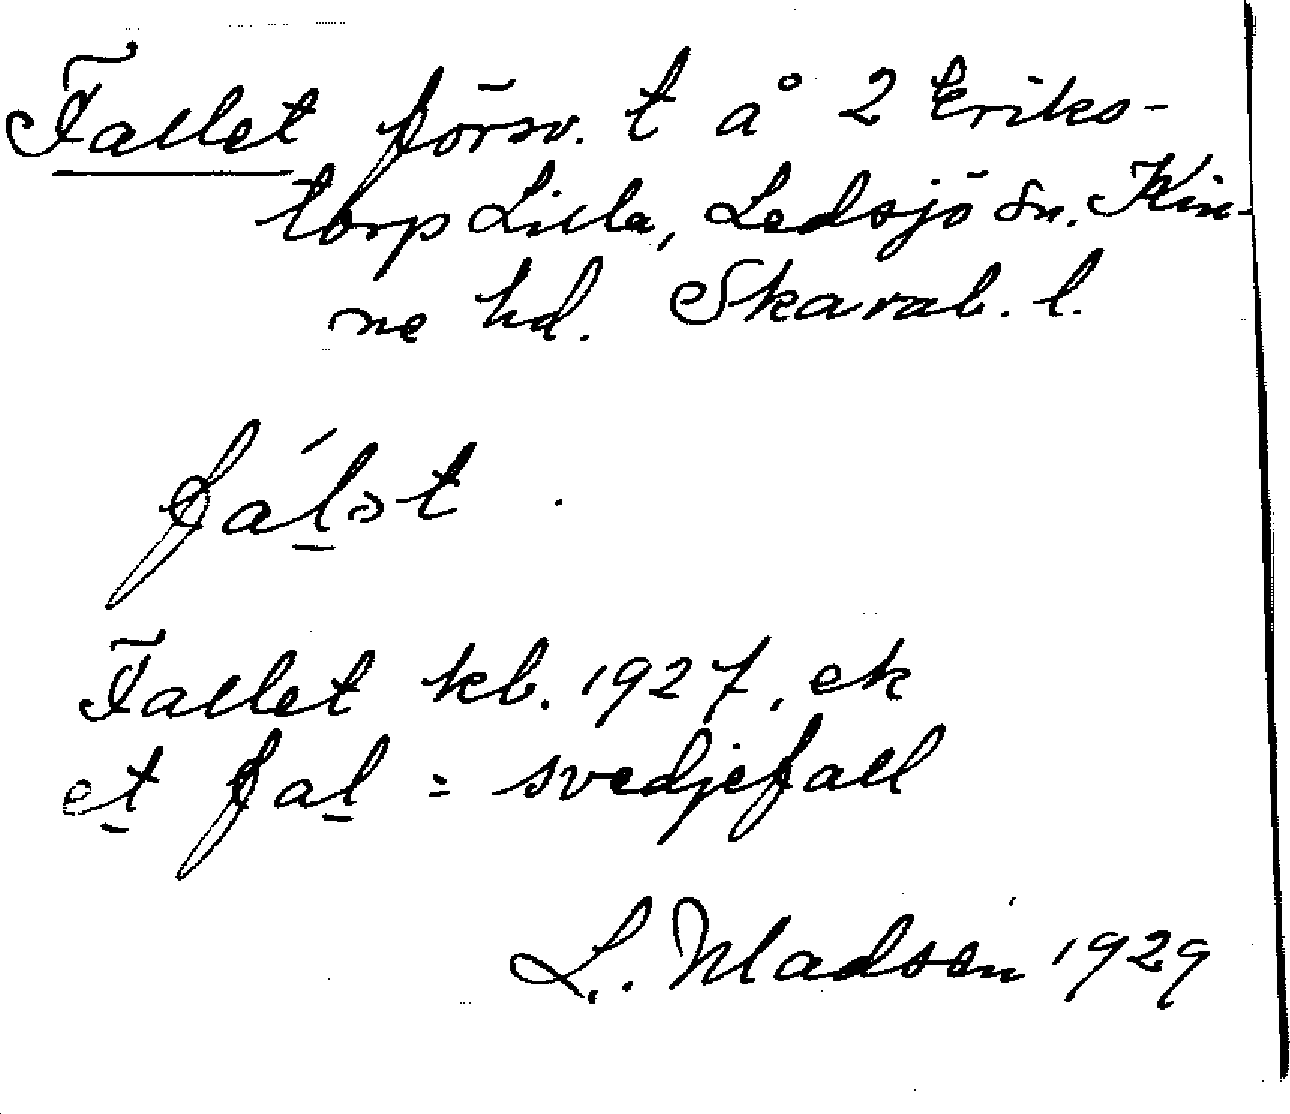 Fallet försv. t å 2 Eriks-
torp Lilla, Ledsjö sn. Kin-
ne hd. Skarab. l.
fál̲ət
Fallet kb. 1927, ek
et̲ fal̲ = svedjefall
L. Madsen 1929